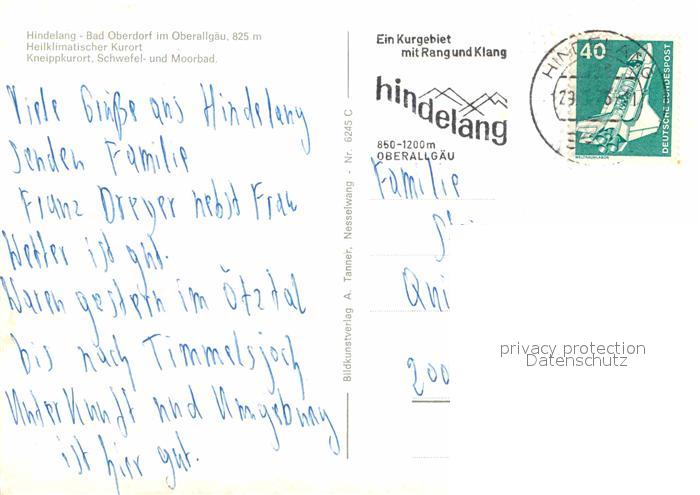 Hindelang - Bad Oberdorf im Oberallgäu, 825 m
Heilklimatischer Kurort
Kneippkurort, Schwefel- und Moorbad.
Viele Grüße aus Hindelang
senden Familie
Franz Dreyer nebst Frau
Wetter ist gut.
Waren gestern im Ötztal
bis nach Timmelsjoch
Unterkunft und Umgebung
ist hier gut.
Bildkunstverlag A. Tanner, Nesselwang - Nr. 6245 C
Ein Kurgebiet
mit Rang und Klang
hindelang
850-1200m
OBERALLGÄU
HINDELANG
40
DEUTSCHE BUNDESPOST
WELTRAUMLABOR
Familie
200
privacy protection
Datenschutz